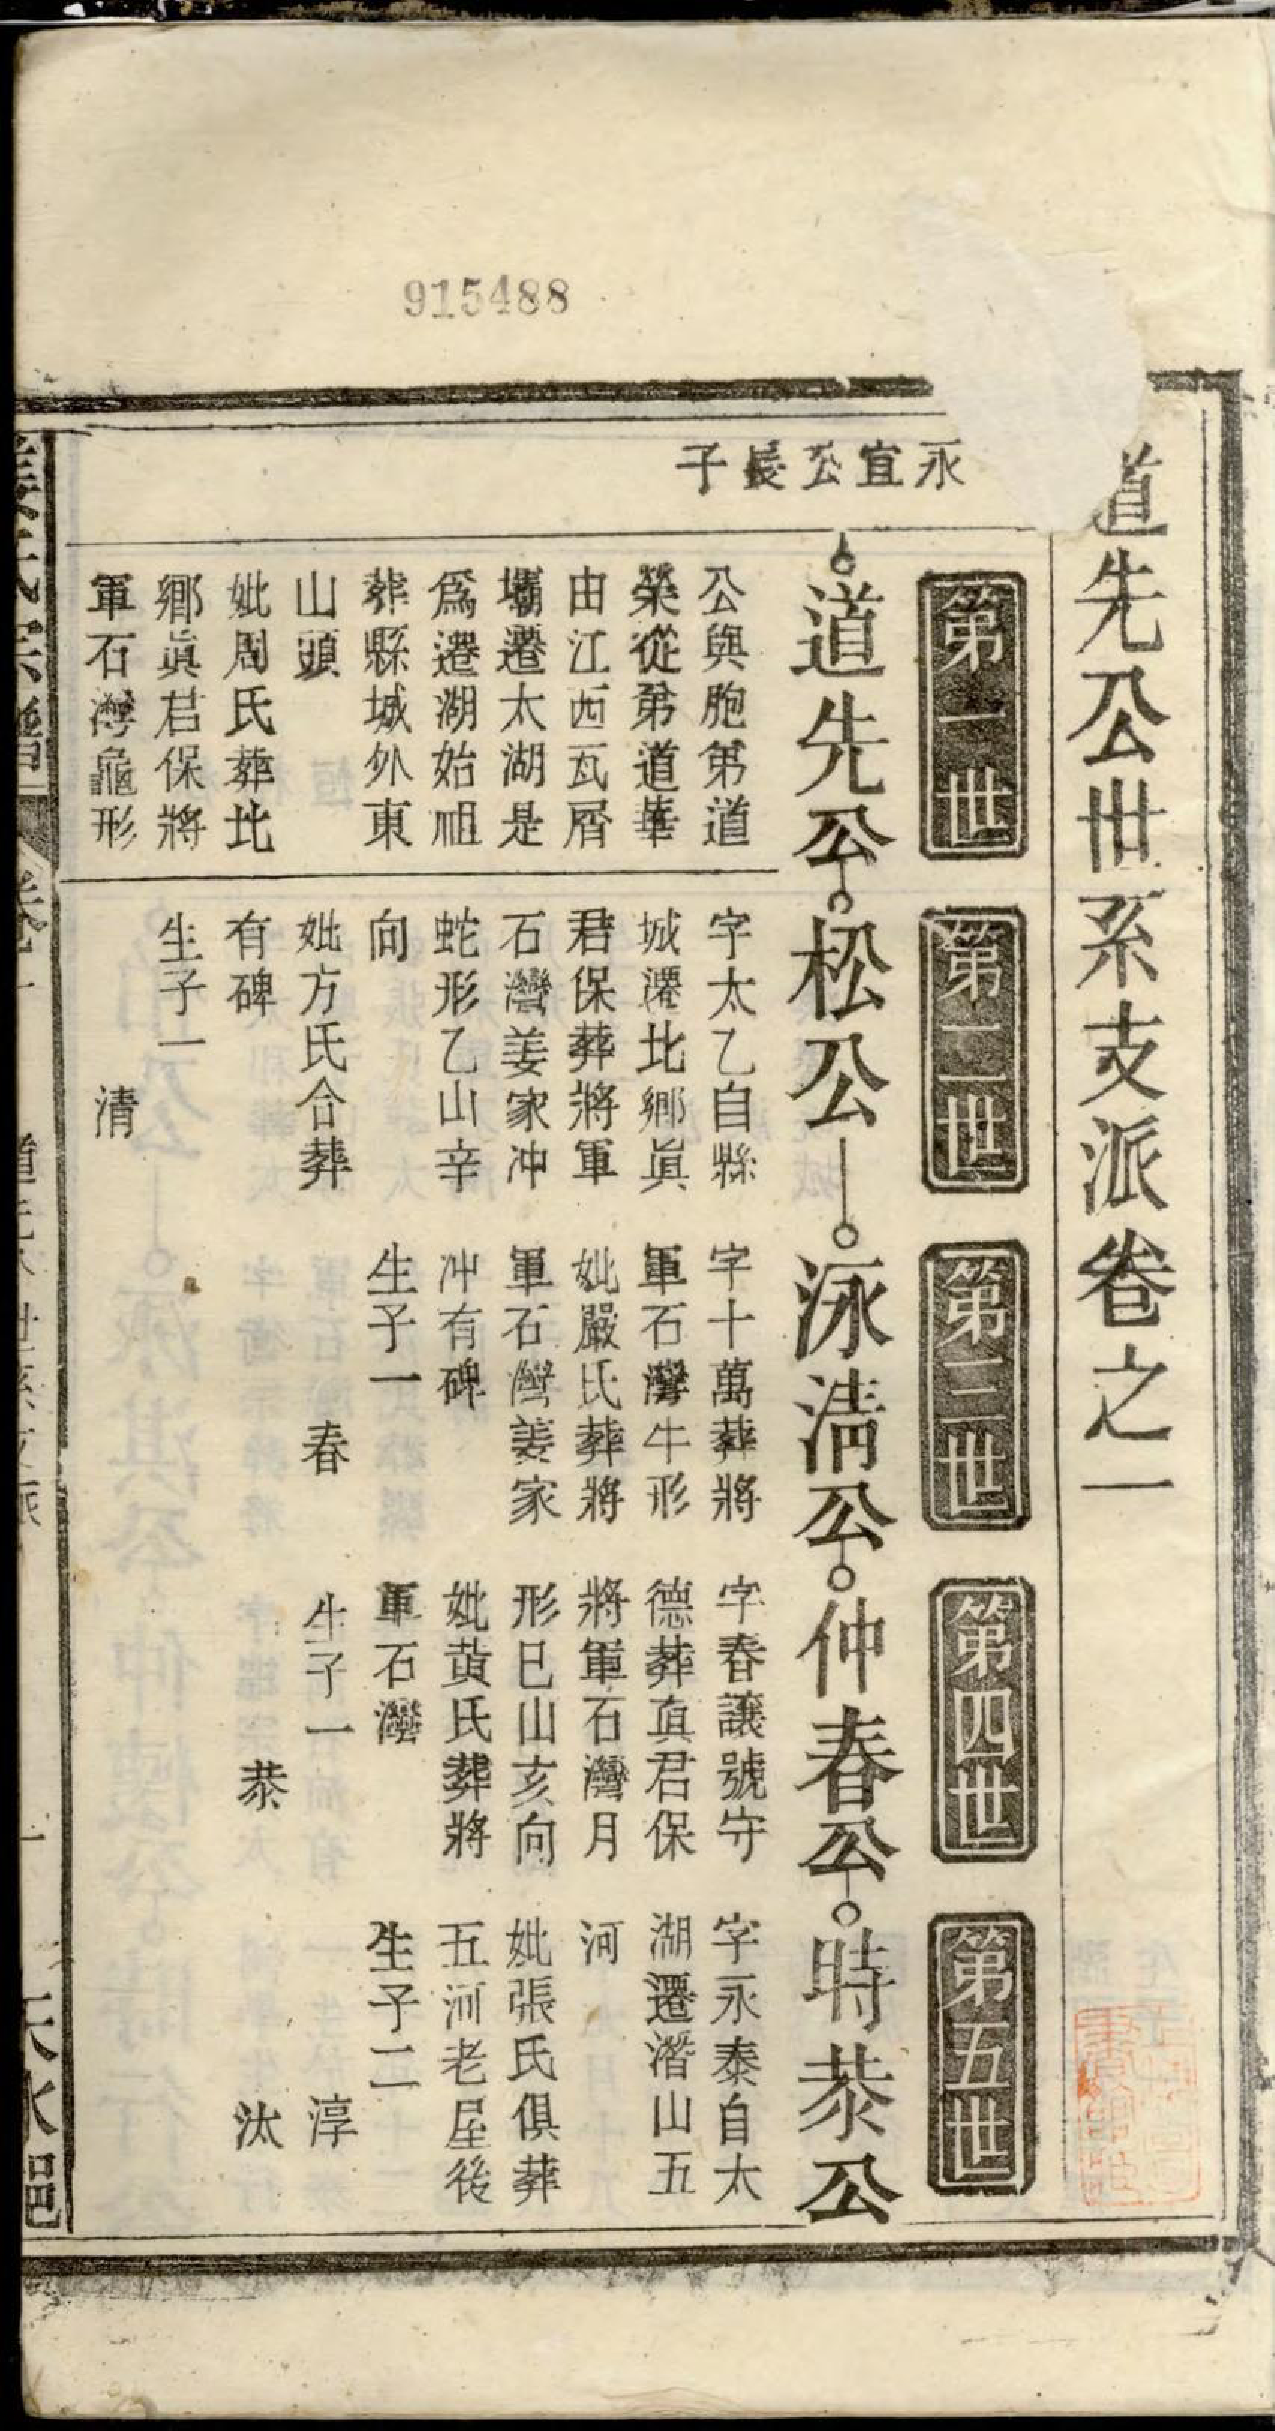 915488
道先公世系支派卷之一
永宜公長子
第一世
道先公
公與胞弟道
榮從弟道華
由江西瓦屑
壩遷太湖是
爲遷湖始祖
葬縣城外東
山頭
妣周氏葬北
鄉眞君保將
軍石灣龜形
第二世
松公
字太乙自縣
城遷北鄉眞
君保葬將軍
石灣姜家冲
蛇形乙山辛
向
妣方氏合葬
有碑
生子一
清
第三世
泳清公
字十萬葬將
軍石灣牛形
妣嚴氏葬將
軍石灣姜家
冲有碑
生子一
春
第四世
仲春公
字春讓號守
德葬眞君保
將軍石灣月
形巳山亥向
妣黃氏葬將
軍石灣
生子一
恭
第五世
時恭公
字永泰自太
湖遷潛山五
河
妣張氏俱葬
五河老屋後
生子二
淳
汰